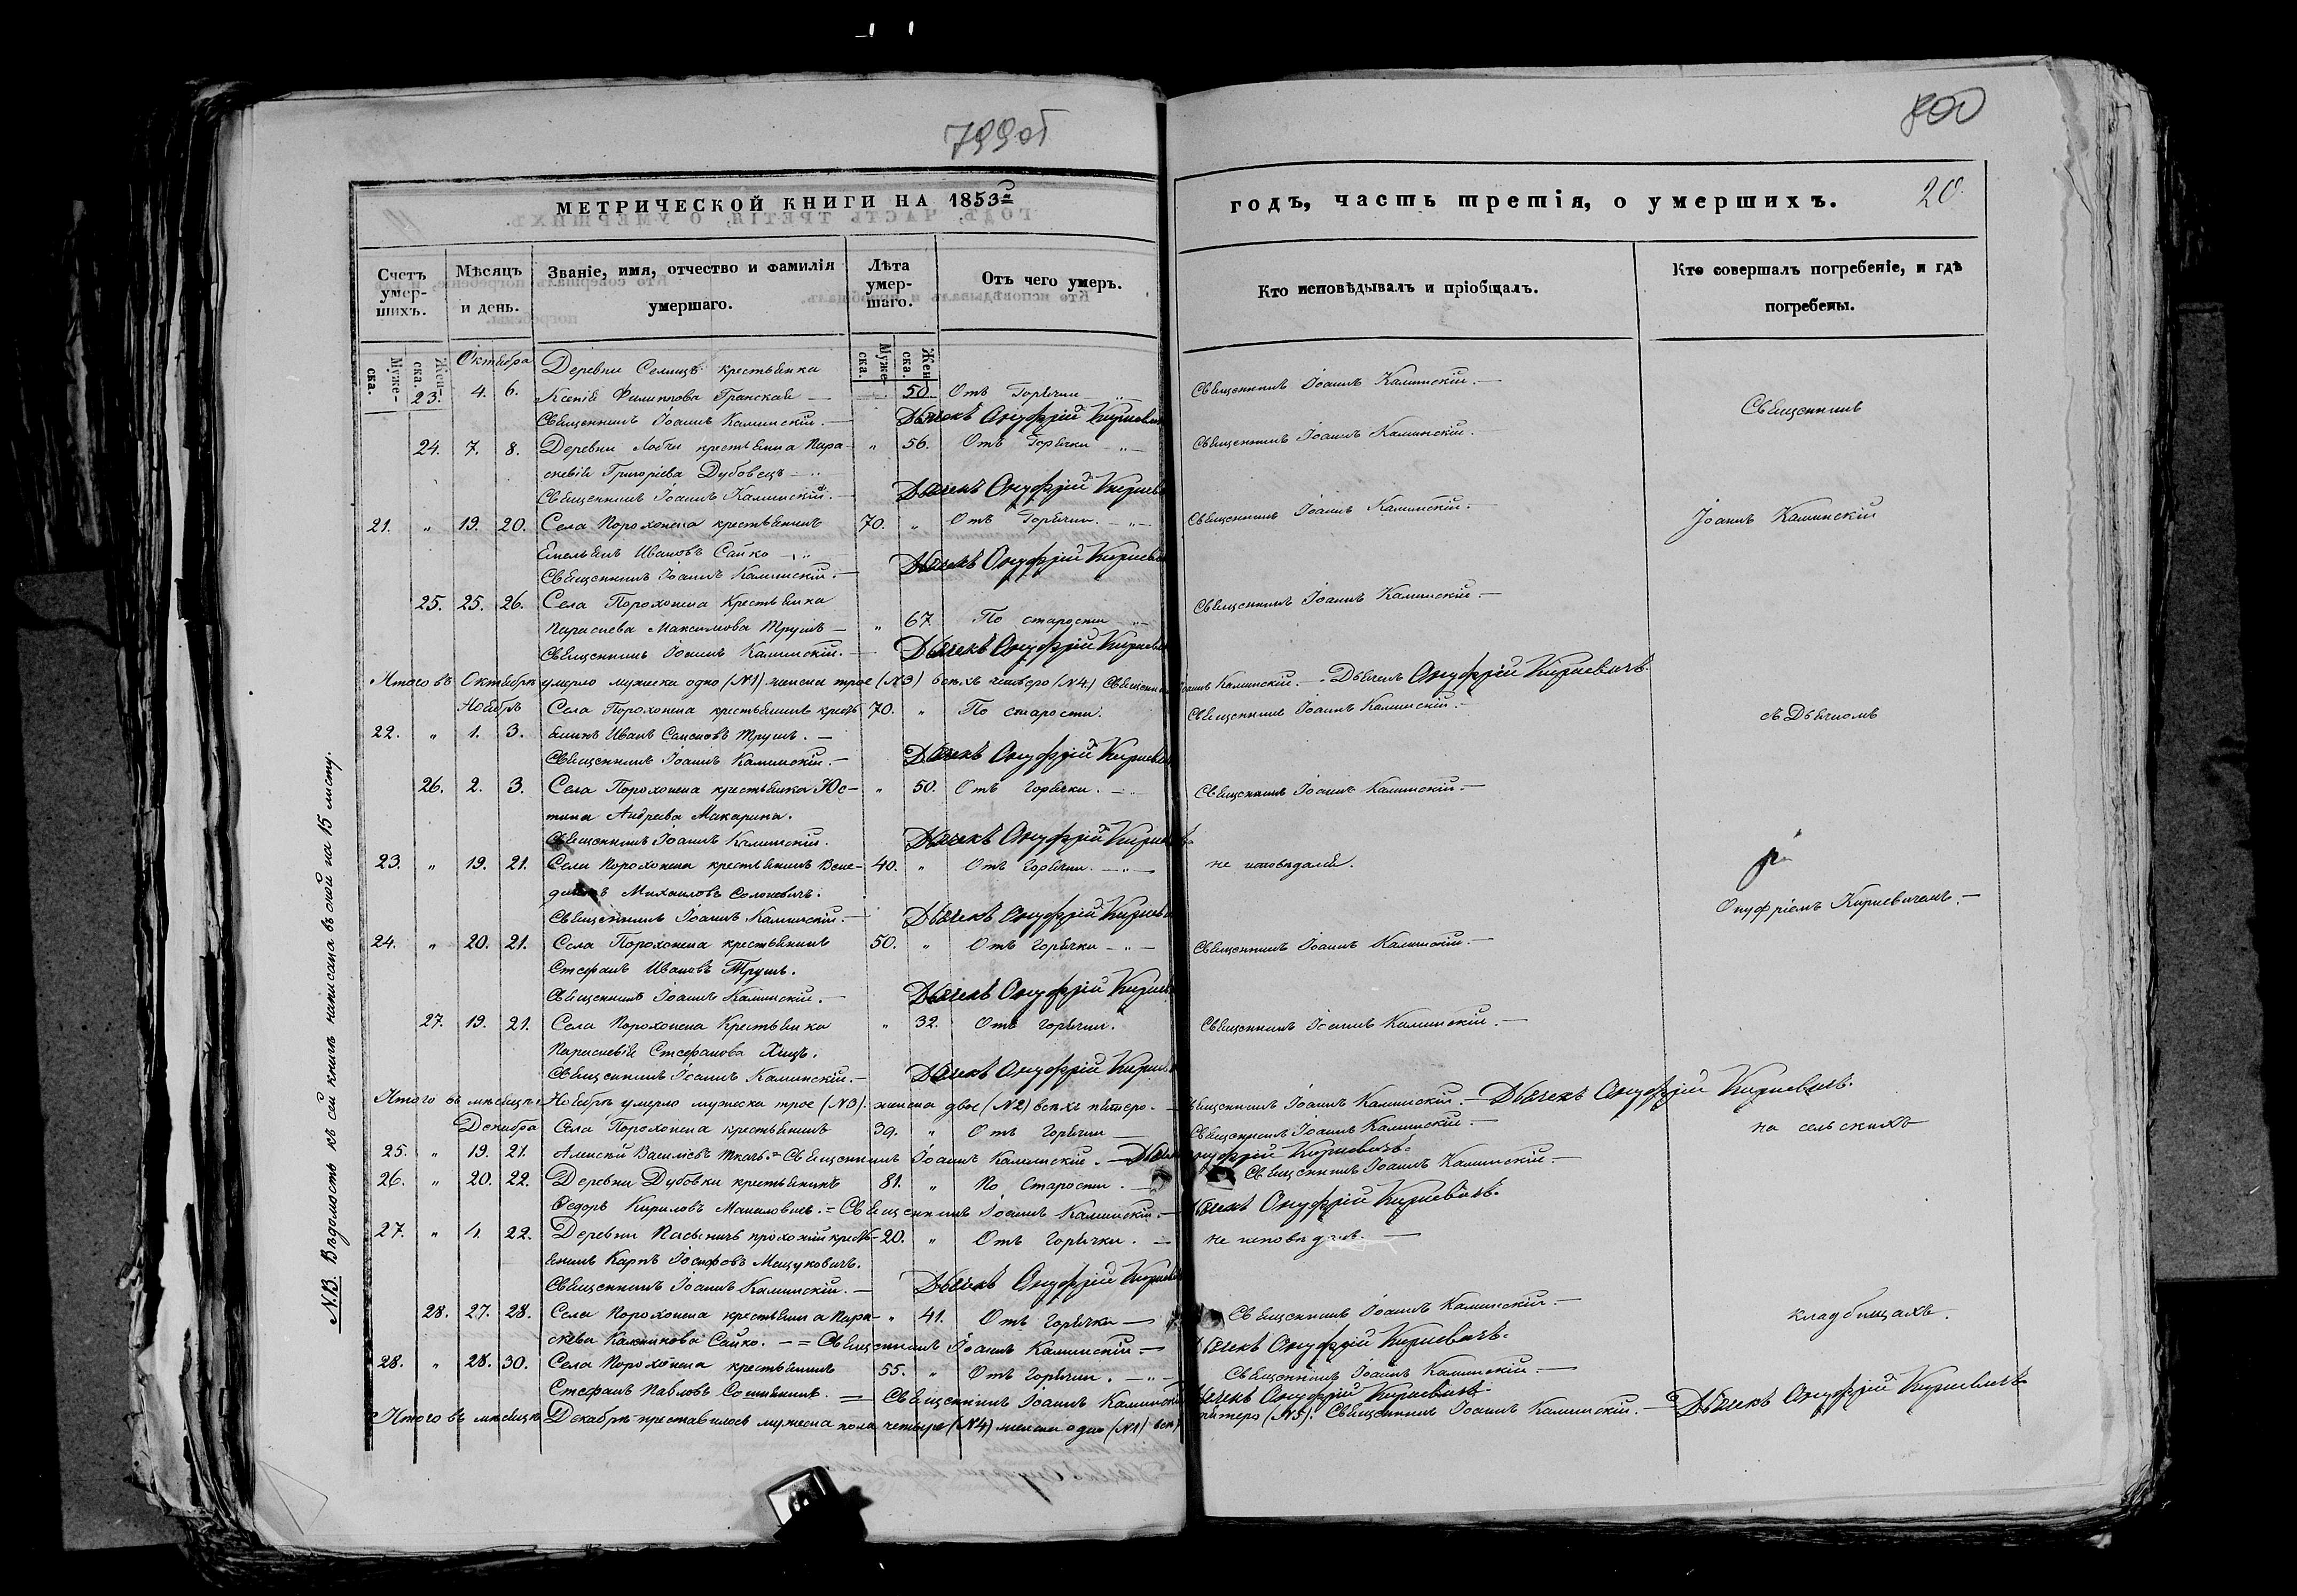 799об
800
МЕТРИЧЕСКОЙ КНИГИ НА 1853й
годъ, часть третія, о умершихъ.
20.
Счетъ умер-шихъ.
Мѣсяцъ и день.
Званіе, имя, отчество и фамилія умершаго.
Лѣта умер-шаго.
Отъ чего умеръ.
Кто исповѣдывалъ и пріобщалъ.
Кто совершалъ погребеніе, и гдѣ погребены.
Муже-ска.
Жен-ска.
Муже-ска.
Жен-ска.
Октября Деревни крестьянка
23. 4. 6. Ксенія Филиппова Гранская — 50. Отъ Горячки — Священникъ Іоаннъ Калинскій. —
Священникъ Іоаннъ Калинскій. — Дьячекъ Онуфрій Кириевичъ
Священникъ
24. 7. 8. Деревни крестьянка Пара- „ 56. Отъ Горячки „ — Священникъ Іоаннъ Калинскій. —
скевія Григорієва Дубовецъ
Священникъ Іоаннъ Калинскій. — Дьячекъ Онуфрій Кириевичъ
21. „ 19. 20. Села Порохонска крестьянинъ 70. „ Отъ Горячки. — „ — Священникъ Іоаннъ Калинскій. —
Іоаннъ Калинскій
Емельянъ Ивановъ Сайко
Священникъ Іоаннъ Калинскій. — Дьячекъ Онуфрій Кириевичъ
25. 25. 26. Села Порохонска Крестьянка Священникъ Іоаннъ Калинскій. —
Параскева Максимова Трушъ — „ 67. По старости
Священникъ Іоаннъ Калинскій. — Дьячекъ Онуфрій Кириевичъ
Итого въ Октябрѣ умерло мужеска одно (№1) женска трое (№3) всѣхъ четверо (№4.) Священникъ Іоаннъ Калинскій. — Дьячекъ Онуфрій Кириевичъ.
Ноябрь Села Порохонска крестьянинъ 70. „ По старости. Священникъ Іоаннъ Калинскій. —
съ Дьячкомъ
22. „ 1. 3. Иванъ Трушъ. —
Священникъ Іоаннъ Калинскій. — Дьячекъ Онуфрій Кириевичъ
26. 2. 3. Села Порохонска крестьянка Юс- „ 50. Отъ горячки. — Священникъ Іоаннъ Калинскій. —
тина Андреева Макарина.
Священникъ Іоаннъ Калинскій. Дьячекъ Онуфрій Кириевичъ
23. „ 19. 21. Села Порохонска крестьянинъ Вене- 40. „ Отъ Горячки. — „ — не исповѣдался.
Михаиловъ Солоневичъ.
Онуфріемъ Кириевичемъ. —
Священникъ Іоаннъ Калинскій. — Дьячекъ Онуфрій Кириевичъ
24. „ 20. 21. Села Порохонска крестьянинъ 50. „ Отъ Горячки — „ — Священникъ Іоаннъ Калинскій. —
Стефанъ Ивановъ Трушъ.
Священникъ Іоаннъ Калинскій. — Дьячекъ Онуфрій Кириевичъ
27. 19. 21. Села Порохонска Крестьянка „ 32. Отъ горячки. Священникъ Іоаннъ Калинскій. —
Параскевія Стефанова
Священникъ Іоаннъ Калинскій. — Дьячекъ Онуфрій Кириевичъ
Итого въ мѣсяцѣ Ноябрѣ умерло мужеска трое (№3). женска двое (№2) всѣхъ пятеро. — Священникъ Іоаннъ Калинскій. — Дьячекъ Онуфрій Кириевичъ.
Декабря Села Порохонска крестьянинъ 39. „ Отъ горячки — Священникъ Іоаннъ Калинскій. —
на сельскихъ
25. „ 19. 21. Алексій Василіевъ Ткачъ. = Священникъ Іоаннъ Калинскій. — Дьячекъ Онуфрій Кириевичъ.
26. „ 20. 22. Деревни Дубовки крестьянинъ 81. „ По Старости. — Священникъ Іоаннъ Калинскій. —
Ѳедоръ Кириловъ = Священникъ Іоаннъ Калинскій. — Дьячекъ Онуфрій Кириевичъ.
27. „ 22. Деревни прохожій крестъ- 20. „ Отъ горячки. — не исповѣданъ. —
янинъ Карпъ Іосифовъ Мацуковичъ.
Священникъ Іоаннъ Калинскій. — Дьячекъ Онуфрій Кириевичъ
28. 27. 28. Села Порохонска крестьянка Пара- „ 41. Отъ горячки — Священникъ Іоаннъ Калинскій. —
кладбищахъ.
скева Сайко. — = Священникъ Іоаннъ Калинскій — Дьячекъ Онуфрій Кириевичъ.
28. „ 28. 30. Села Порохонска крестьянинъ 55. „ Отъ Горячки. — „ — Священникъ Іоаннъ Калинскій. —
Стефанъ Павловъ = Священникъ Іоаннъ Калинскій Дьячекъ Онуфрій Кириевичъ
Итого въ мѣсяцѣ Декабрѣ преставилось мужеска пола четыре (№4) женска одно (№1) всѣхъ пятеро (№5). Священникъ Іоаннъ Калинскій. — Дьячекъ Онуфрій Кириевичъ
N.B. Вѣдомость къ сей книгѣ написана въ оной на 15 листу.